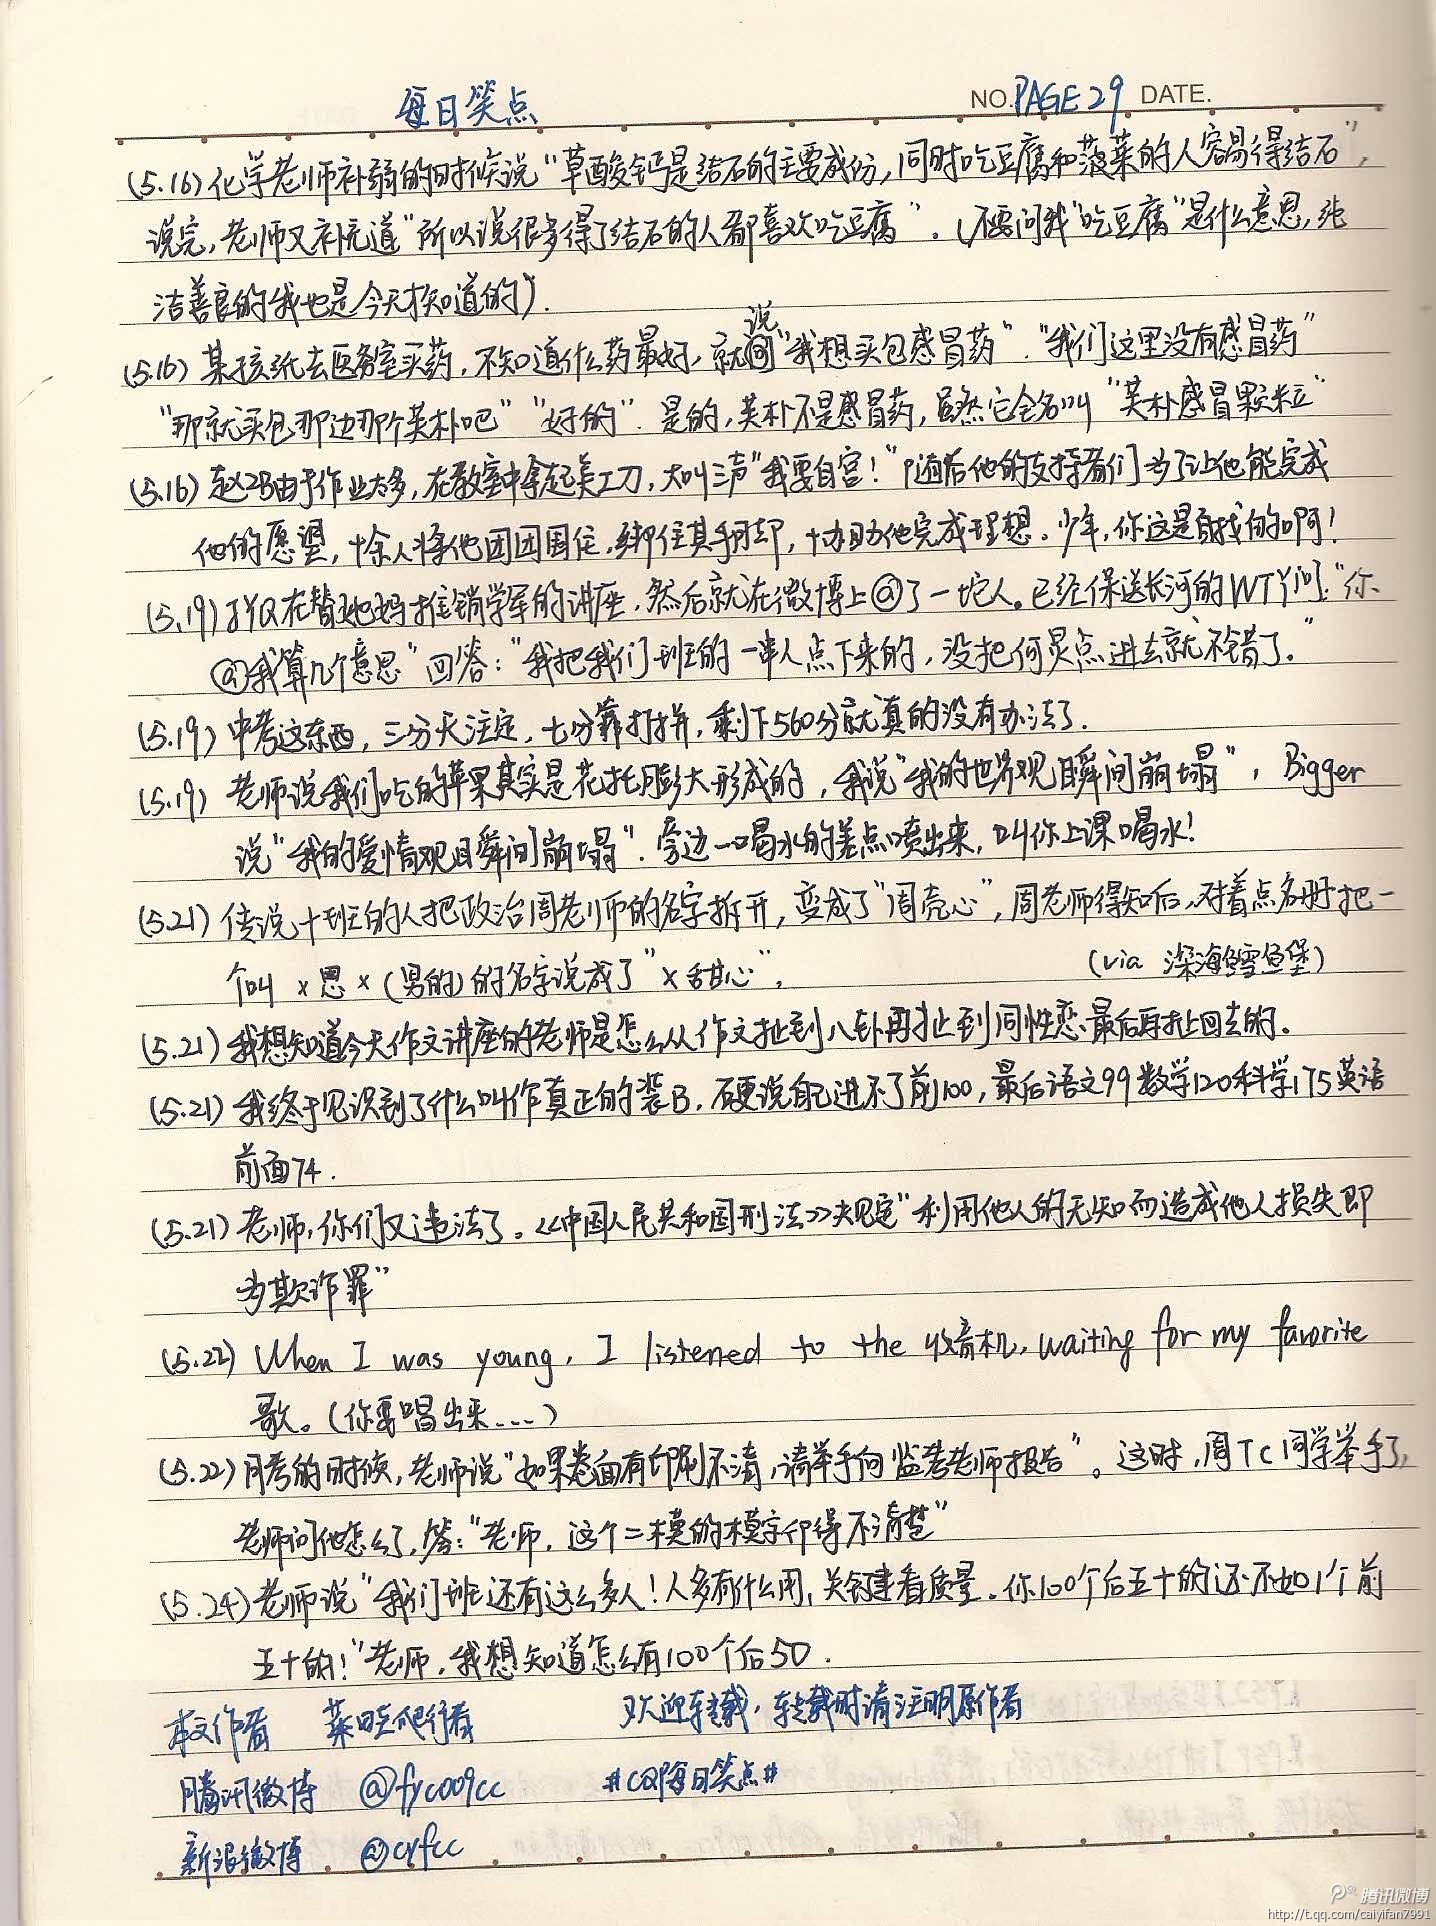 每日笑点
NO. PAGE 29 DATE.
(5.16) 化学老师补弱的时候说"草酸钙是结石的主要成份,同时吃豆腐和菠菜的人容易得结石",
说完,老师又补充道"所以说很多得了结石的人都喜欢吃豆腐"。(不要问我"吃豆腐"是什么意思,纯
洁善良的我也是今天才知道的)。
(5.16) 某孩纸去医务室买药,不知道什么药最好,就说"我想买包感冒药"."我们这里没有感冒药"
"那就买包那边那个英朴吧" "好的". 是的,英朴不是感冒药,虽然它全名叫"英朴感冒颗粒"
(5.16) 赵2B由于作业太多,在教室中拿起美工刀,大叫三声"我要自宫!"随后他的支持者们为了让他能完成
他的愿望,十余人将他团团围住,绑住其手脚,协助他完成理想。少年,你这是自找的啊!
(5.19) JYQ在替她妈推销学军的讲座,然后就在微博上@了一坨人。已经保送长河的WTY问:"你
@我算几个意思"回答:"我把我们班的一串人点下来的,没把何灵点进去就不错了。"
(5.19) 中考这东西,三分天注定,七分靠打拼,剩下560分就真的没有办法了.
(5.19) 老师说我们吃的苹果其实是花托膨大形成的,我说"我的世界观瞬间崩塌",Bigger
说"我的爱情观瞬间崩塌".旁边一喝水的差点喷出来,叫你上课喝水!
(5.21) 传说十班的人把政治周老师的名字拆开,变成了"周壳心",周老师得知后,对着点名册把一
个叫×思×(男的)的名字说成了"×甜心". (via 深海鳕鱼堡)
(5.21) 我想知道今天作文讲座的老师是怎么从作文扯到八卦再扯到同性恋最后再扯回去的。
(5.21) 我终于见识到了什么叫作真正的装B,硬说自己进不了前100,最后语文99数学120科学175英语
前面74.
(5.21) 老师,你们又违法了。《中国人民共和国刑法》规定"利用他人的无知而造成他人损失即
为欺诈罪"
(5.22) When I was young, I listened to the 收音机, waiting for my favorite
歌。(你要唱出来...)
(5.22) 月考的时候,老师说"如果卷面有印刷不清,请举手向监考老师报告"。这时,周TC同学举手了,
老师问他怎么了,答:"老师,这个二模的模字印得不清楚"
(5.24) 老师说"我们班还有这么多人!人多有什么用,关键看质量。你100个后五十的还不如1个前
五十的!"老师,我想知道怎么有100个后50.
本文作者 菜田爬行者 欢迎转载,转载时请注明原作者
腾讯微博 @fyc009cc #CQ每日笑点#
新浪微博 @cyfcc
腾讯微博
http://t.qq.com/caiyifan7991